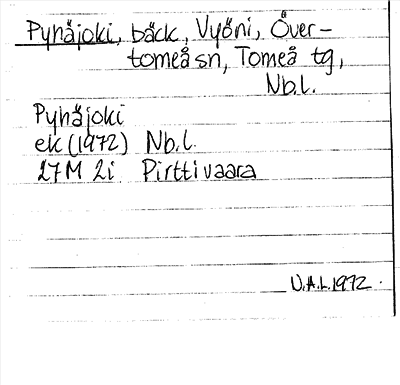 Pyhäjoki, bäck, Vyöni, Över-
torneå sn, Torneå tg,
Nb.l.
Pyhäjoki
ek (1972) Nb.l.
27M 2i Pirttivaara
U.A.L. 1972.